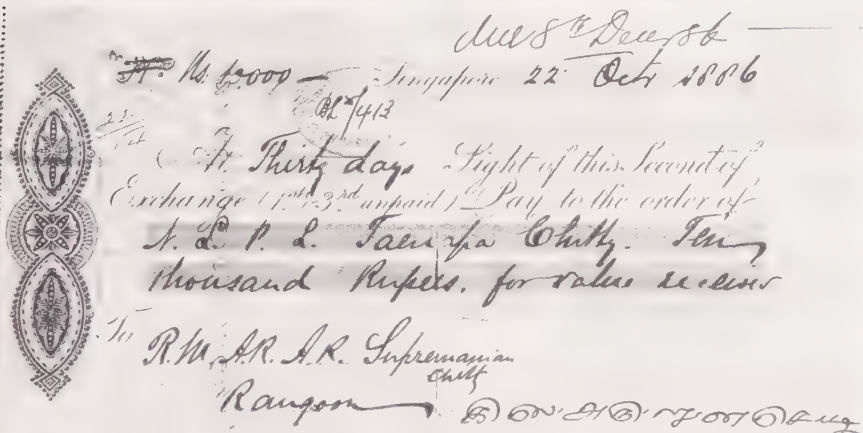 Due 8th Decr 86
Rs. 10000 — Singapore 22 Octr 1886
At Thirty days Sight of this Second of
Exchange (1st & 3rd unpaid) Pay to the order of
N. L. P. L. Chitty. Ten
thousand Rupees. for value received
To
R.M. A.R. A.R. Supremanian
Chitty
Rangoon